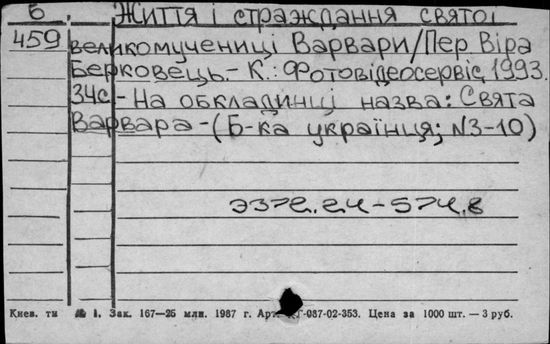 6. Життя і страждання святої
459 великомучениці Варвари/Пер Віра
Берковець.- К.: Фотовідеосервіс, 1993.
34с - На обкладинці назва: Свята
Варвара - (Б-ка українця; №3-10)
Э372.24-574,8
Киев. ти № 1. Зак. 167—25 млн. 1987 г. Арт. -087-02-353. Цена за 1000 шт. — 3 руб.